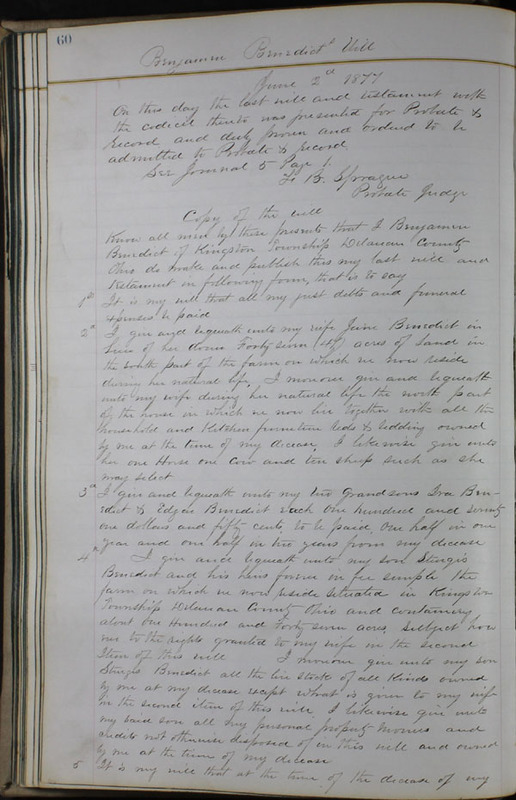 60
Benjamin Benedict's Will
June 2d 1877
On this day the last will and testament with
the codicil thereto was presented for Probate &
record and duly proven and ordered to be
admitted to Probate & record
See Journal 5 Page 1.
B. Sprague
Probate Judge
Copy of the will
Know all men by these presents that I Benjamin
Benedict of Kingston Township Delaware County
Ohio do make and publish this my last will and
testament in following form, that is to say
1st It is my will that all my just debts and funeral
expenses be paid
2d I give and bequeath unto my wife Jane Benedict in
lieu of her dower Forty seven (47) acres of Land in
the south part of the farm on which we now reside
during her natural life, I moreover give and bequeath
unto my wife during her natural life the north part
of the house in which we now live together with all the
household and Kitchen furniture beds & bedding owned
by me at the time of my decease. I likewise give unto
her one Horse one Cow and ten sheep such as she
may select
3d I give and bequeath unto my two Grandsons Ira Ben-
edict & Edgar Benedict each One hundred and seventy
one dollars and fifty cents to be paid. One half in one
year and one half in two years from my decease
4th I give and bequeath unto my son Sturgis
Benedict and his heirs forever in fee simple the
farm on which we now reside situated in Kingston
Township Delaware County Ohio and containing
about One Hundred and Forty seven acres, subject how
ever to the rights granted to my wife in the second
Item of this will I moreover give unto my son
Sturgis Benedict all the live stock of all kinds owned
by me at my decease except what is given to my wife
in the second item of this will. I likewise give unto
my said son all my personal property monies and
credits not otherwise disposed of in this will and owned
by me at the time of my decease
5 It is my will that at the time of the decease of my